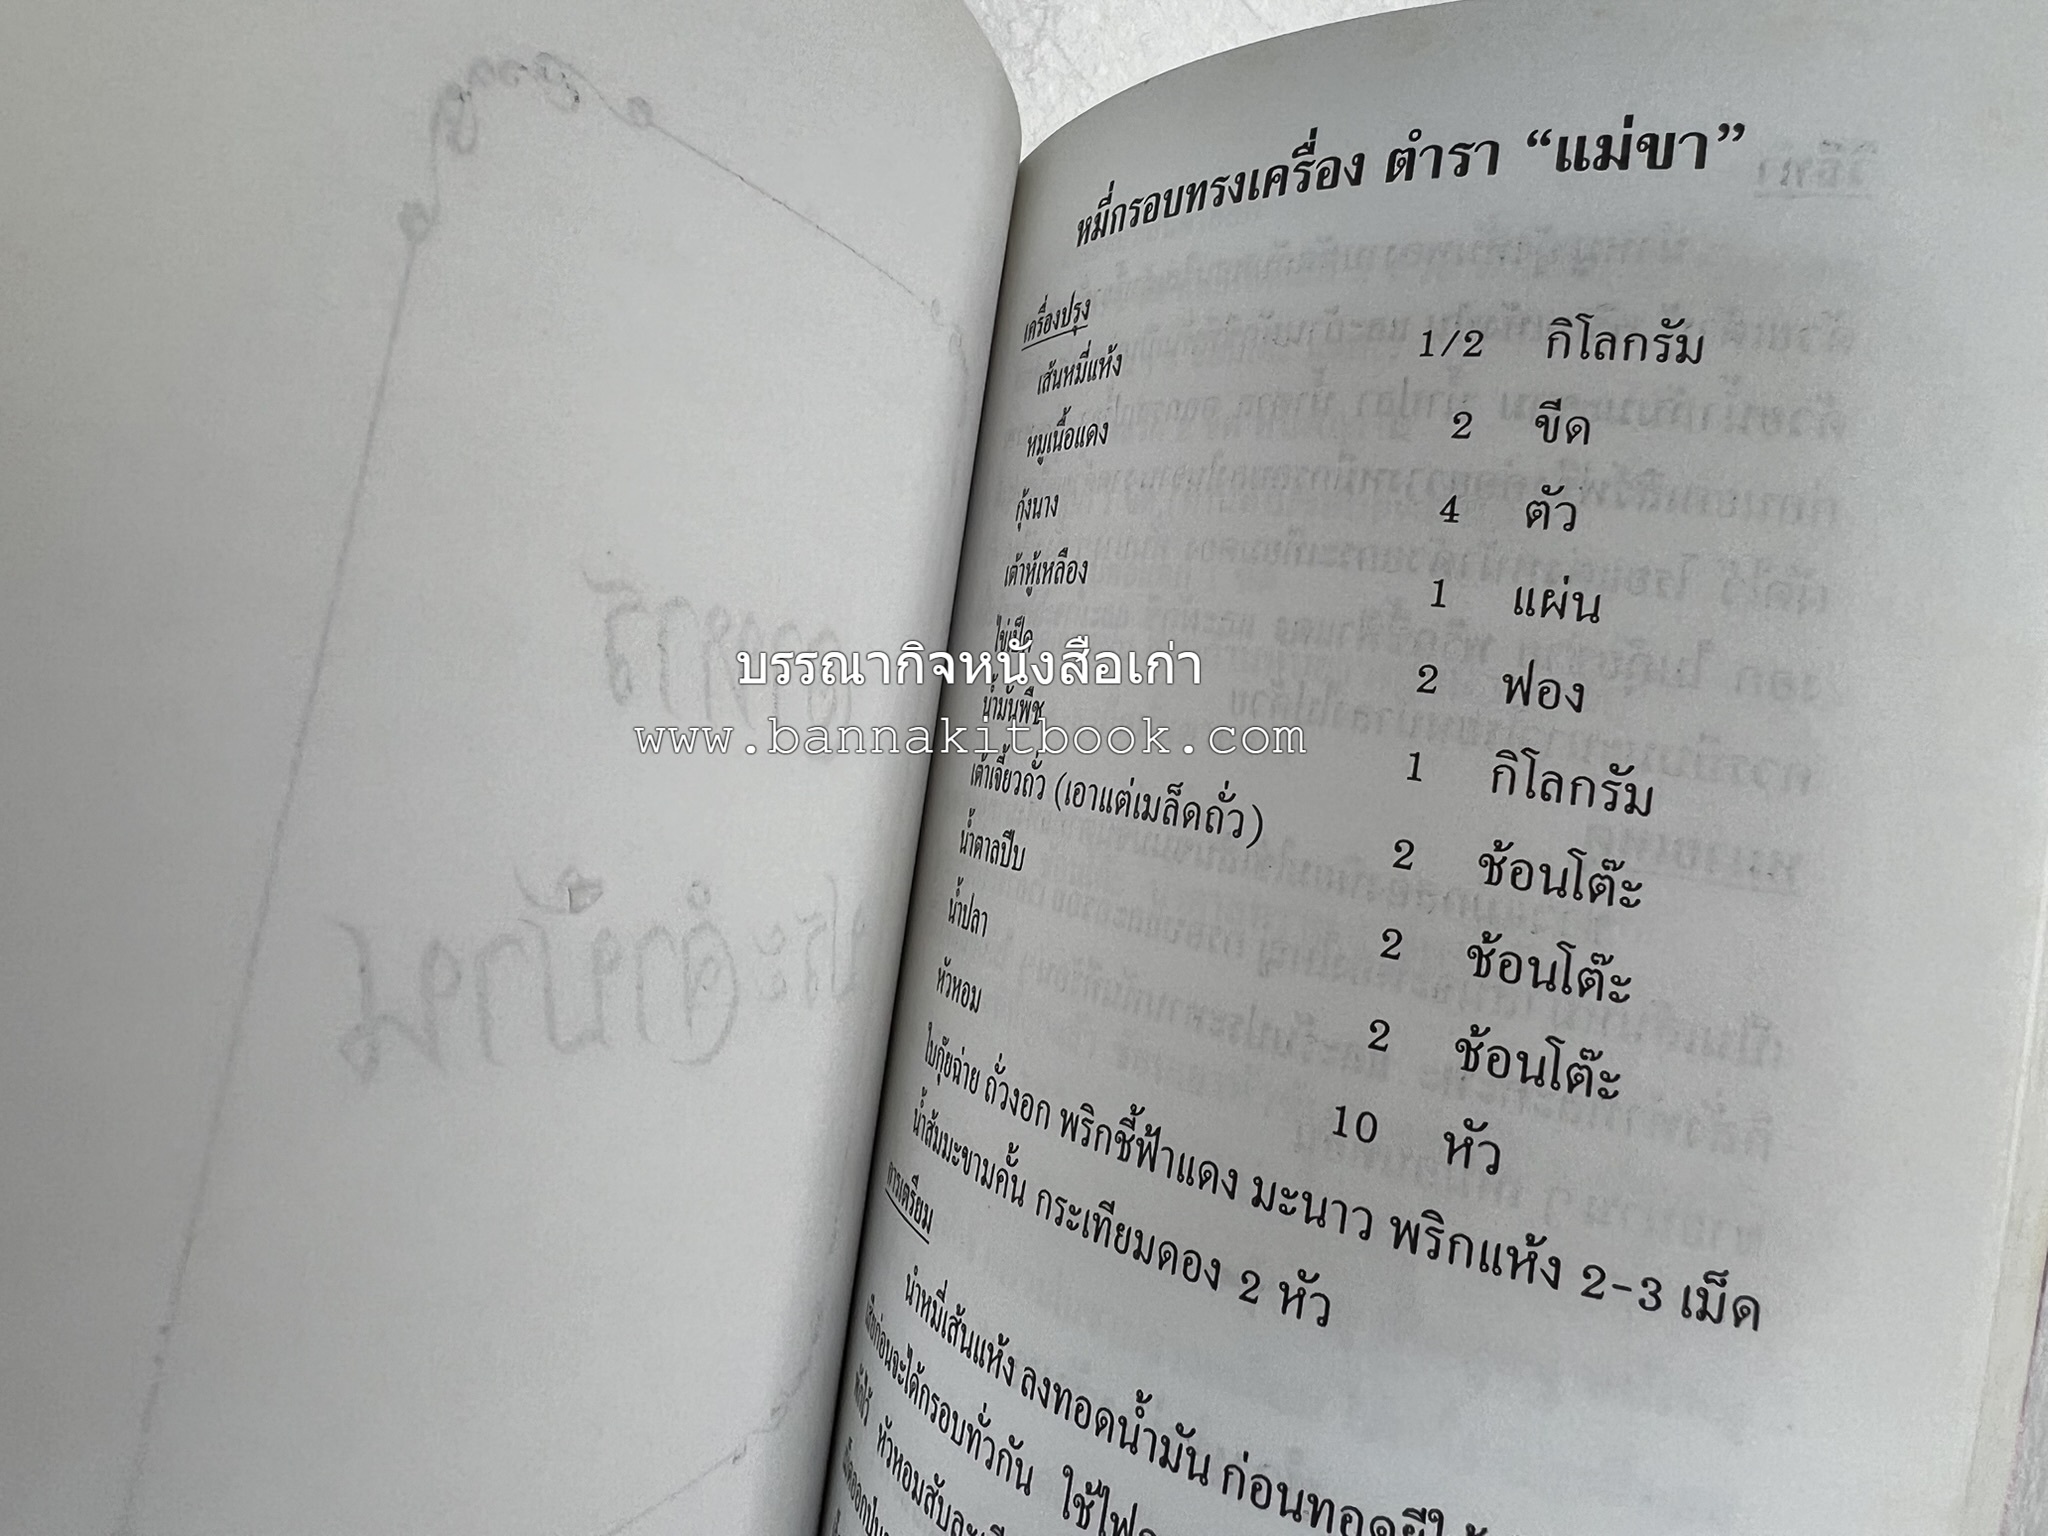 หมี่กรอบทรงเครื่อง ตำรา “แม่ขา”
เครื่องปรุง
เส้นหมี่แห้ง 1/2 กิโลกรัม
หมูเนื้อแดง 2 ขีด
กุ้งนาง 4 ตัว
เต้าหู้เหลือง 1 แผ่น
ไข่เป็ด 2 ฟอง
บรรณากิจหนังสือเก่า
น้ำมันพืช 1 กิโลกรัม
www.bannakitbook.com
เต้าเจี้ยวถั่ว (เอาแต่เมล็ดถั่ว) 2 ช้อนโต๊ะ
น้ำตาลปีบ 2 ช้อนโต๊ะ
น้ำปลา 2 ช้อนโต๊ะ
หัวหอม 10 หัว
ใบกุ๊ยฉ่าย ถั่วงอก พริกชี้ฟ้าแดง มะนาว พริกแห้ง 2-3 เม็ด
น้ำส้มมะขามคั้น กระเทียมดอง 2 หัว
การเตรียม
นำหมี่เส้นแห้ง ลงทอดน้ำมัน ก่อนทอด
เสียก่อนจะได้กรอบทั่วกัน
พักไว้ หัวหอมสับ
อาหาร
ประจำบ้าน